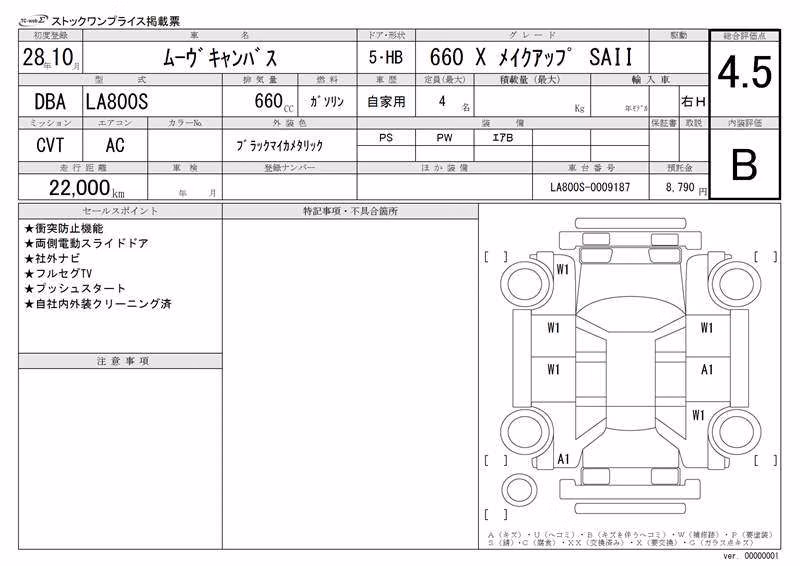 TC-webΣ ストックワンプライス掲載票
初度登録 車名 ドア・形状 グレード 駆動 総合評価点
28年10月 ムーヴキャンバス 5・HB 660 X メイクアップ SAII 4.5
型式 排気量 燃料 車歴 定員(最大) 積載量(最大) 輸入車
DBA LA800S 660CC ガソリン 自家用 4名 Kg 年モデル 右H
ミッション エアコン カラーNo. 外装色 装備 保証書 取説 内装評価
CVT AC ブラックマイカメタリック PS PW エアB B
走行距離 車検 登録ナンバー ほか装備 車台番号 預託金
22,000km 年 月 LA800S-0009187 8,790円
セールスポイント 特記事項・不具合箇所
★衝突防止機能
★両側電動スライドドア
★社外ナビ
★フルセグTV
★プッシュスタート
★自社内外装クリーニング済
注意事項
[ ] W1 [ ]
W1 W1
W1 A1
W1
[ ] A1 [ ]
[ ]
A(キズ)・U(ヘコミ)・B(キズを伴うヘコミ)・W(補修跡)・P(要塗装)
S(錆)・C(腐食)・XX(交換済み)・X(要交換)・G(ガラス点キズ)
ver. 00000001